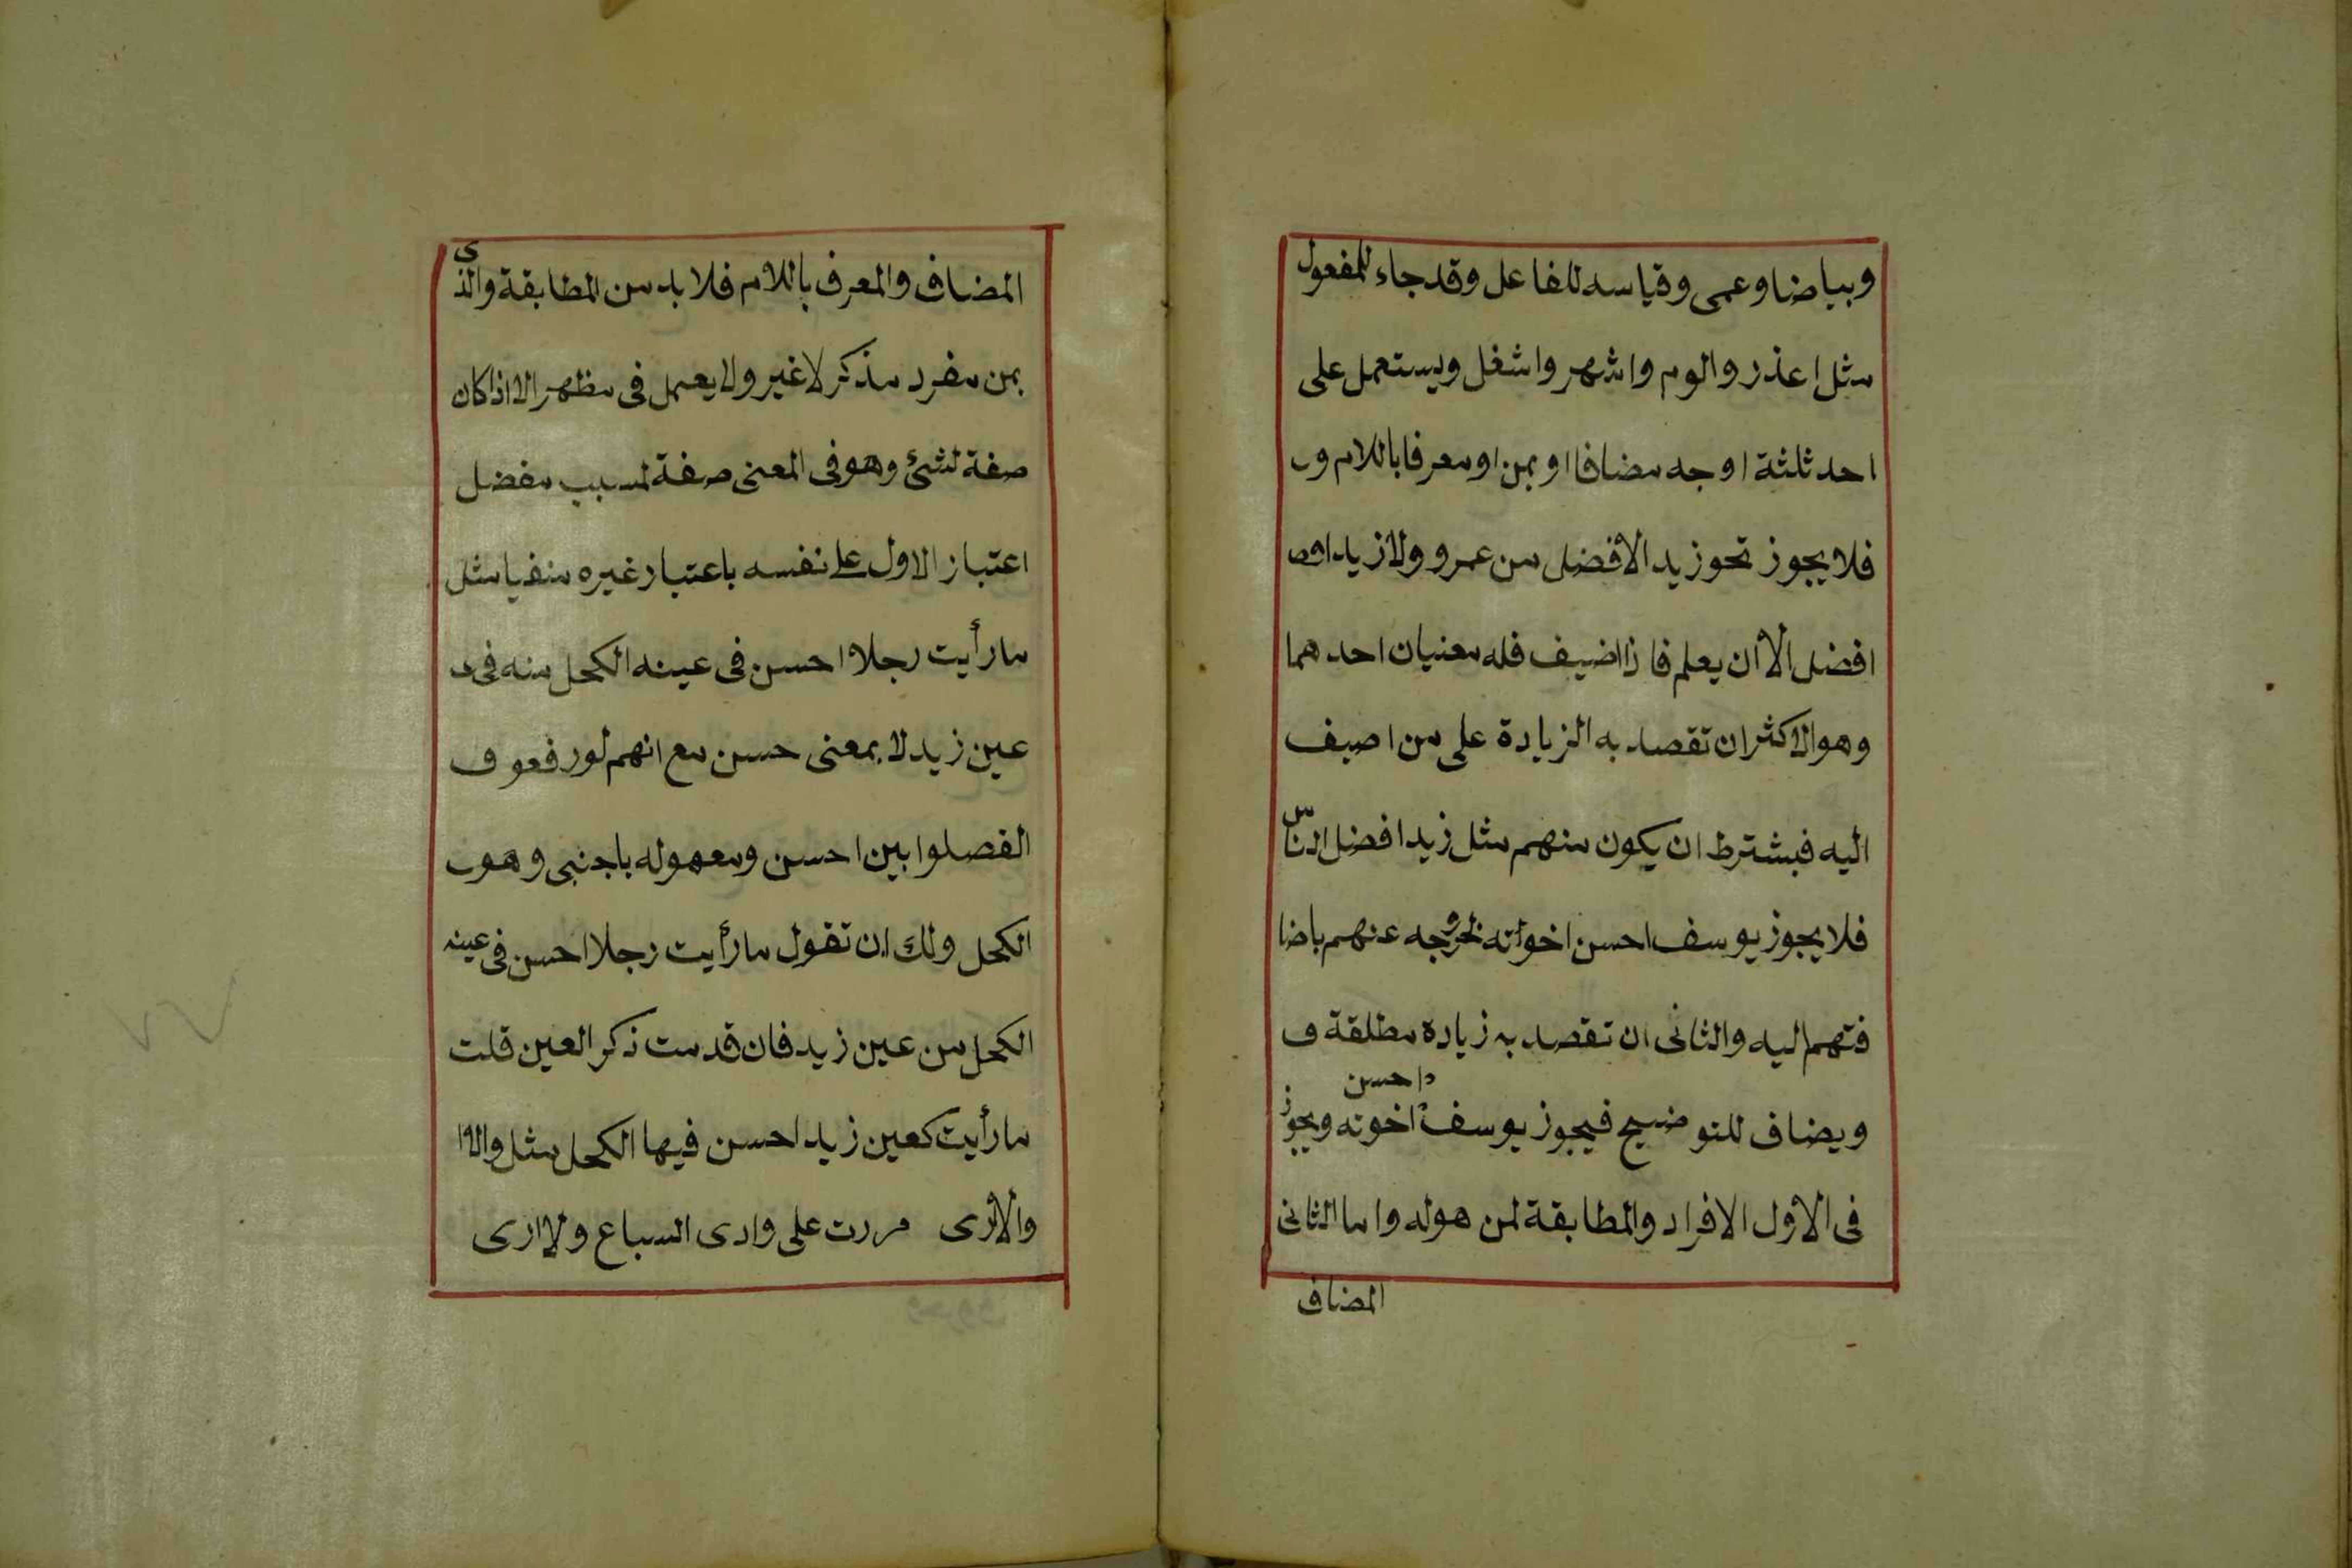 وبياضا وعمى وقياسه للفاعل وقد جاء للمفعول
مثل اعذر والوم واشهر واشغل ويستعمل على
احد ثلثة اوجه مضافا او بمن او معرفا باللام و
فلا يجوز نحو زيد الأفضل من عمرو ولا زيد
افضل الأ أن يعلم فاذا اضيف فله معنيان احدهما
وهو الاكثر ان تقصد به الزيادة على من اصيف
اليه فيشترط ان يكون منهم مثل زيد افضل النّاس
فلا يجوز يوسف احسن اخواته لخروجه عنهم باضا
فتهم اليه والثانى ان تقصد به زيادة مطلقة و
ويضاف للتوضيح فيجوز يوسف احسن اخوته ويجوز
فى الأول الافراد والمطابقة لمن هوله واما الثانى
المضاف
المضاف والمعرف باللام فلا بد من المطابقة والذى
بمن مفرد مذكر لا غير ولا يعمل فى مظهر الا اذا كان
صفة لشئ وهو فى المعنى صفة لمسبب مفضل
اعتبار الاول على نفسه باعتبار غيره منفيا مثل
ما رأيت رجلا احسن فى عينه الكحل منه فى
عين زيد لا بمعنى حسن مع انهم لو رفعو
الفصلوا بين احسن ومعموله باجنبى وهو
الكحل ولك ان تقول ما رأيت رجلا احسن فى عينه
الكحل من عين زيد فان قدمت ذكر العين قلت
ما رأيت كعين زيد احسن فيها الكحل مثل والا
والأرى مررت على وادى السباع ولا ارى